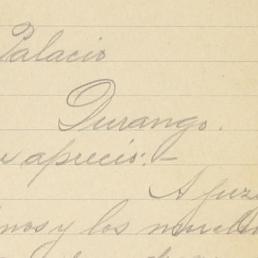 Palacio
Durango.
aprecio:-
A juz
nos y los